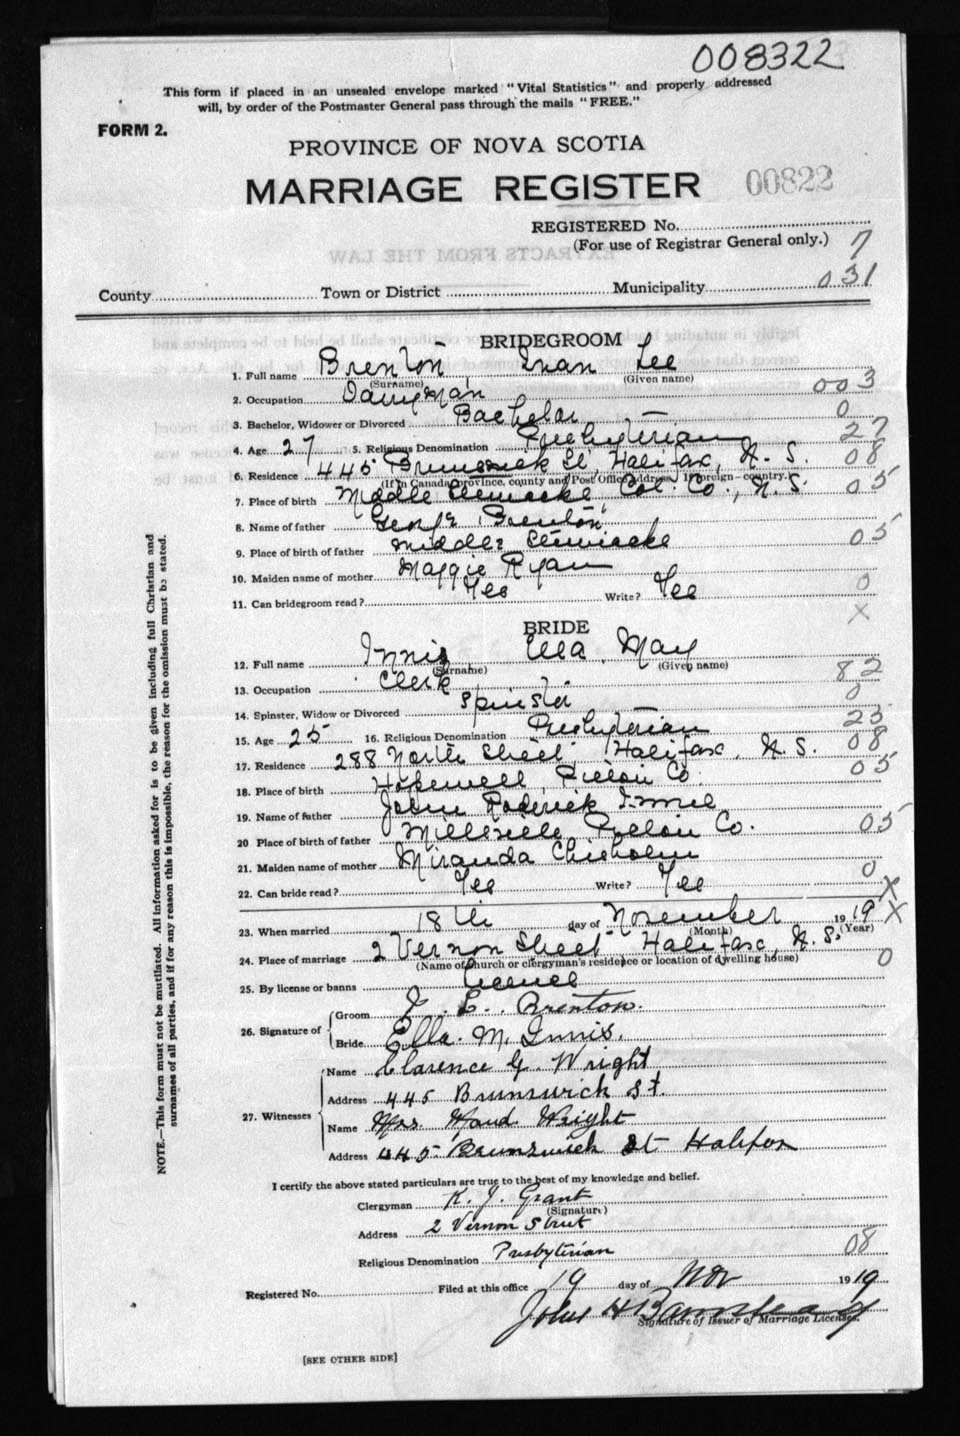 008322
This form if placed in an unsealed envelope marked "Vital Statistics" and properly addressed
will, by order of the Postmaster General pass through the mails "FREE."
FORM 2.
PROVINCE OF NOVA SCOTIA
MARRIAGE REGISTER 00822
REGISTERED No.
(For use of Registrar General only.) 7
County Town or District Municipality 031
BRIDEGROOM
1. Full name Brenton Lee
(Surname) (Given name)
2. Occupation Dairyman 003
3. Bachelor, Widower or Divorced Bachelor 0
4. Age 27 5. Religious Denomination Presbyterian 27
6. Residence 445 Brunswick St, Halifax, N. S. 08
(If in Canada province, county and Post Office address. If foreign—country.)
7. Place of birth Middle Stewiacke, Col. Co., N. S. 05
8. Name of father George Brenton
9. Place of birth of father Middle Stewiacke 05
10. Maiden name of mother Maggie Ryan
11. Can bridegroom read? Yes Write? Yes 0
X
BRIDE
12. Full name Innis Ella May
(Surname) (Given name)
13. Occupation Clerk 82
14. Spinster, Widow or Divorced Spinster 0
15. Age 25 16. Religious Denomination Presbyterian 25
17. Residence 288 North Street Halifax, N. S. 08
18. Place of birth Hopewell, Pictou Co. 05
19. Name of father John Roderick Innis
20 Place of birth of father Millsville Pictou Co. 05
21. Maiden name of mother Miranda Chisholm
22. Can bride read? Yes Write? Yes 0 X
23. When married 18th day of November 1919 X
(Month) (Year)
24. Place of marriage 2 Vernon Street Halifax, N. S. 0
(Name of church or clergyman's residence or location of dwelling house)
25. By license or banns License
26. Signature of
Groom J. L. Brenton.
Bride Ella. M. Innis.
27. Witnesses
Name Clarence G. Wright
Address 445 Brunswick St.
Name Mrs. Maud Wright
Address 445 Brunswick St Halifax
I certify the above stated particulars are true to the best of my knowledge and belief.
Clergyman K. J. Grant
(Signature)
Address 2 Vernon Street
Religious Denomination Presbyterian 08
Registered No. Filed at this office 19 day of Nov 1919
John H Barnstead
Signature of Issuer of Marriage Licenses.
[SEE OTHER SIDE]
NOTE.—This form must not be mutilated. All information asked for is to be given including full Christian and
surnames of all parties, and if for any reason this is impossible, the reason for the omission must be stated.